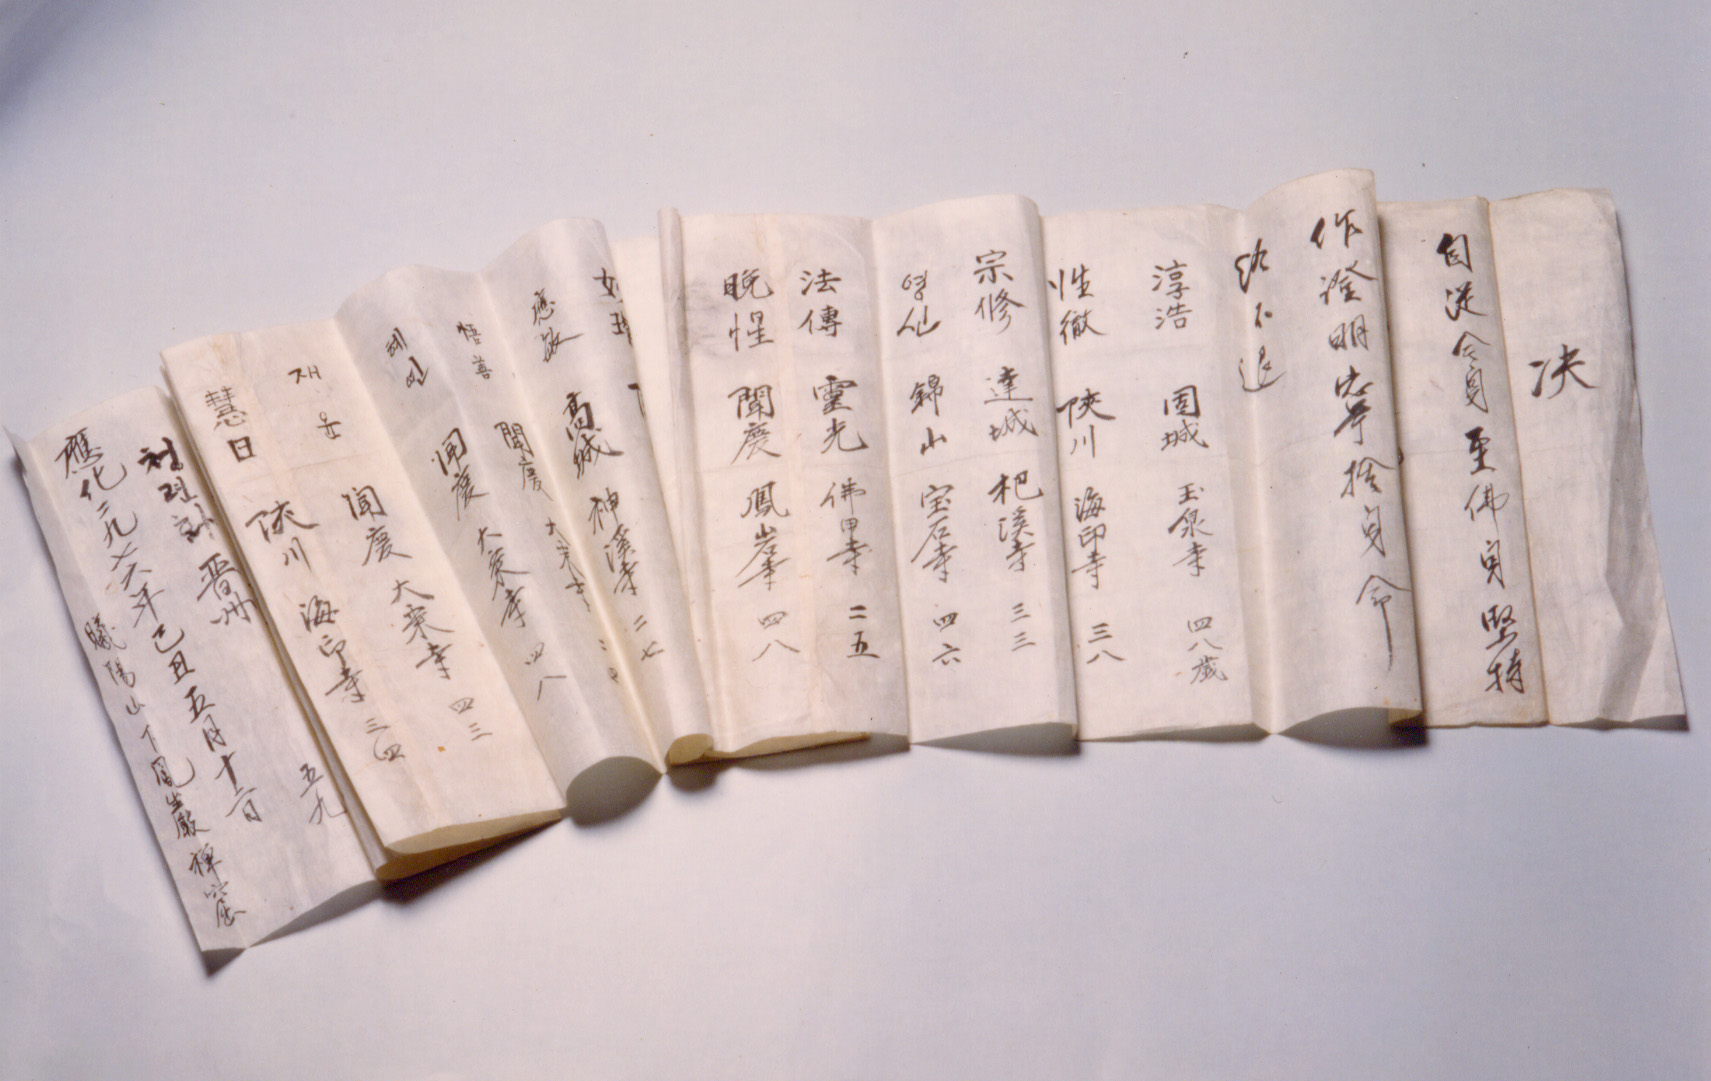 決
自從今身至佛身堅持
作證明寧捨身命
終不退
淳浩 固城 玉泉寺 四八歲
性徹 陜川 海印寺 三八
宗修 達城 杷溪寺 三三
영신 錦山 宝石寺 四六
法傳 靈光 佛甲寺 二五
晩惺 聞慶 鳳岩寺 四八
應敏 高城 神溪寺 二七
悟善 聞慶 大乘寺
혜인 聞慶 大乘寺 四八
재운 聞慶 大乘寺 四三
慧日 陜川 海印寺 三四
청련화 晋州 五九
應化二九七六年己丑五月十二日
曦陽山下鳳岩嚴禪窟